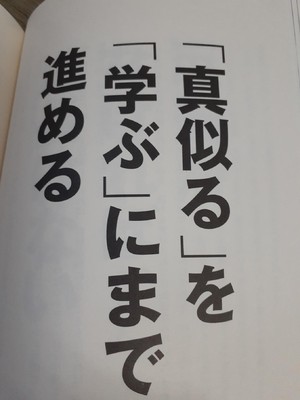 「真似る」を
「学ぶ」にまで
進める